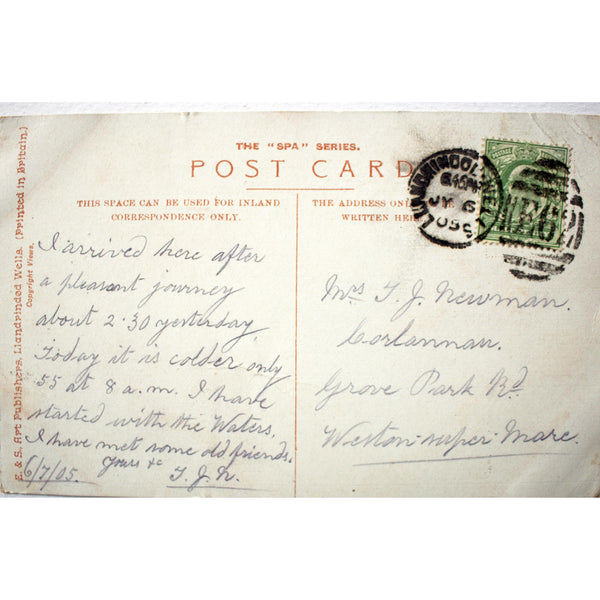 THE "SPA" SERIES.
POST CARD
THIS SPACE CAN BE USED FOR INLAND
CORRESPONDENCE ONLY.
THE ADDRESS ONLY
WRITTEN HERE
E. & S. Art Publishers, Llandrindod Wells. (Printed in Britain.)
Copyright Views.
I arrived here after
a pleasant journey
about 2.30 yesterday
Today it is colder only
55 at 8 a.m. I have
started with the Waters.
I have met some old friends.
Yours &c
6/7/05. T.J.N.
LLANDRINDOD WELLS
6.45PM
JY 6
05
Mrs T. J. Newman.
Corlannau.
Grove Park Rd
Weston-super-Mare.